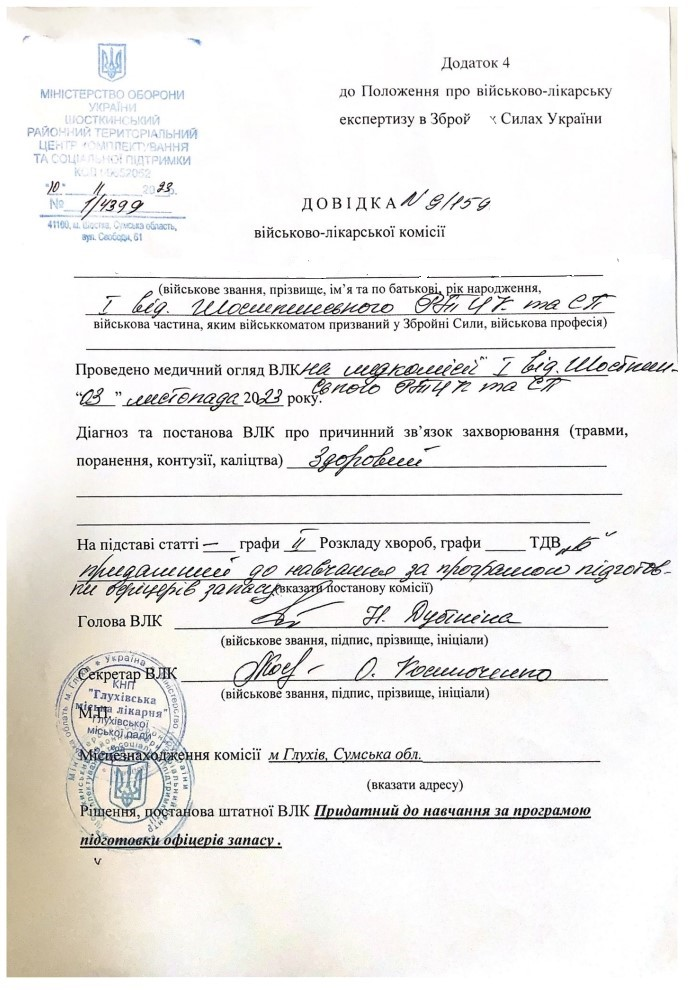 Додаток 4
до Положення про військово-лікарську
експертизу в Зброй х Силах України
МІНІСТЕРСТВО ОБОРОНИ
УКРАЇНИ
ШОСТКИНСЬКИЙ
РАЙОННИЙ ТЕРИТОРІАЛЬНИЙ
ЦЕНТР КОМПЛЕКТУВАННЯ
ТА СОЦІАЛЬНОЇ ПІДТРИМКИ
"10" 11 2023р.
№ 1/4399
41100, м. Шостка, Сумська область,
вул. Свободи, 61
ДОВІДКА N 9/159
військово-лікарської комісії
(військове звання, прізвище, ім’я та по батькові, рік народження,
І від. Шосткинського РТЦК та СП
військова частина, яким військкоматом призваний у Збройні Сили, військова професія)
Проведено медичний огляд ВЛК на медкомісії І від. Шосткин-
ського РТЦК та СП
“03” листопада 2023 року.
Діагноз та постанова ВЛК про причинний зв’язок захворювання (травми,
поранення, контузії, каліцтва) Здоровий
На підставі статті — графи ІІ Розкладу хвороб, графи ТДВ „Б"
придатний до навчання за програмою підготов-
ки офіцерів запасу (вказати постанову комісії)
Голова ВЛК Н. Дубініна
(військове звання, підпис, прізвище, ініціали)
Секретар ВЛК О.
(військове звання, підпис, прізвище, ініціали)
М.П.
Україна
КНП
"Глухівська
міська лікарня"
Глухівської
міської ради
Місцезнаходження комісії м Глухів, Сумська обл.
(вказати адресу)
Рішення, постанова штатної ВЛК Придатний до навчання за програмою
підготовки офіцерів запасу .
v